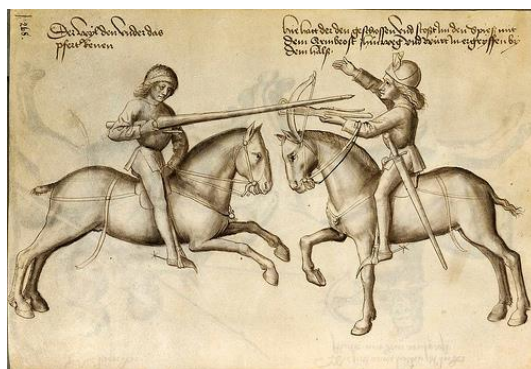 Der weyl den ender das
pfert denen
hie hatt der den geschossen vnd stost im den spiess mit
dem armbrost hinweg vnd würt in ergryffen by
dem halss.